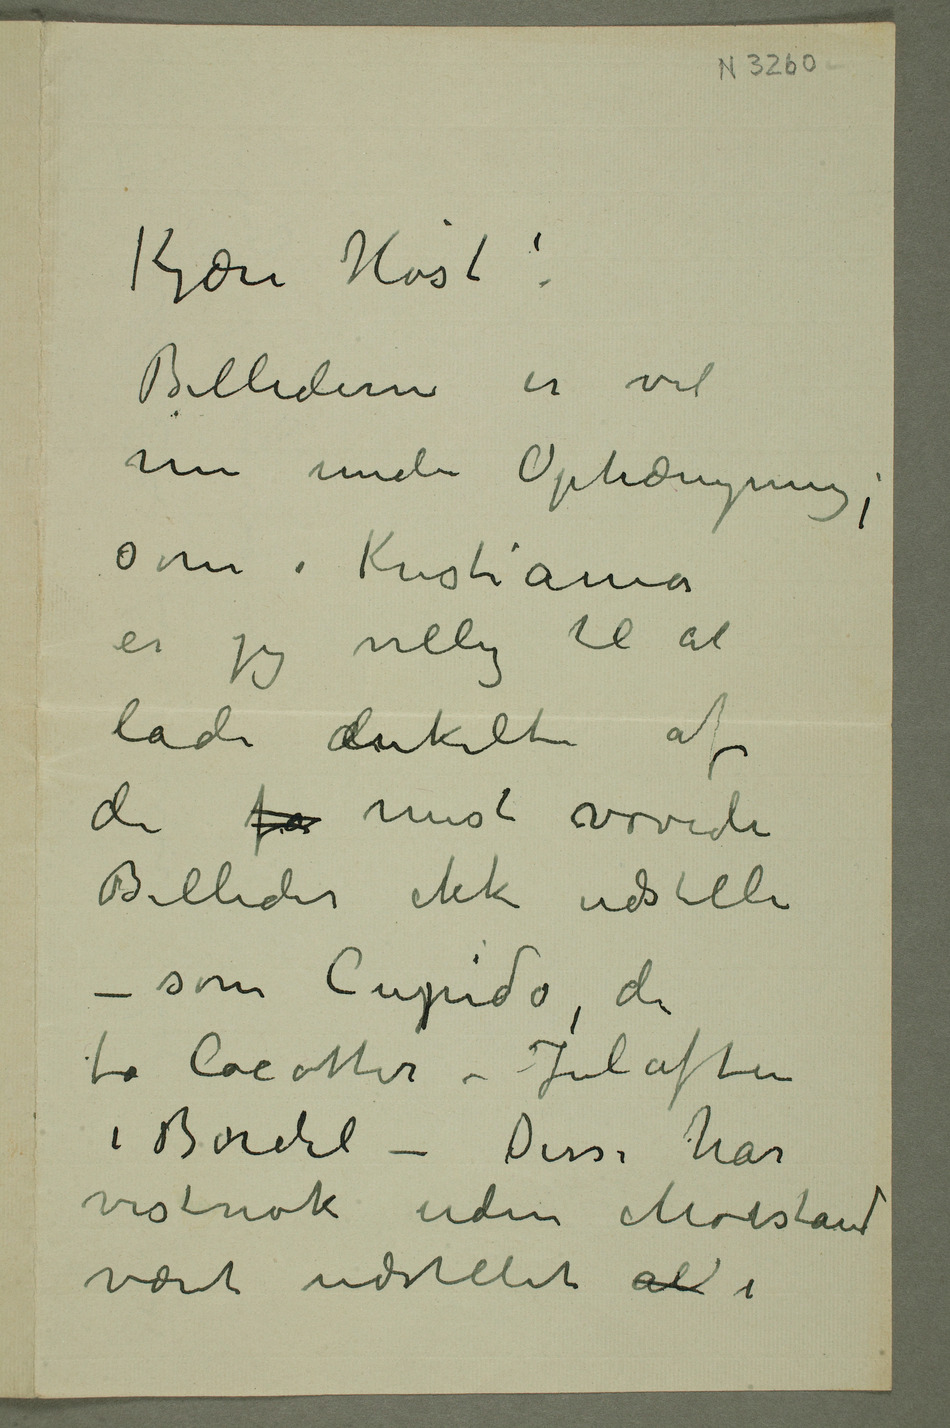 N 3260
Kjære Høst!
Billederne er vel
nu under Ophængning;
som i Kristiania
er jeg villig til at
lade enkelte af
de fa mest vovede
Billeder ikke udstille
– som Cupido, de
to Cocotter – Julaften
i Bordel – Disse har
vistnok uden Motstand
været udstillet al i